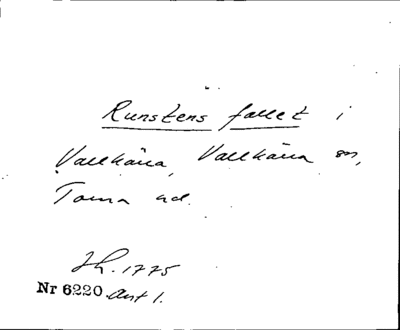 Runstens fallet i
Vallkärra, Vallkärra sn,
Torna hd.
Jh. 1775
Nr 6220 Ant 1.